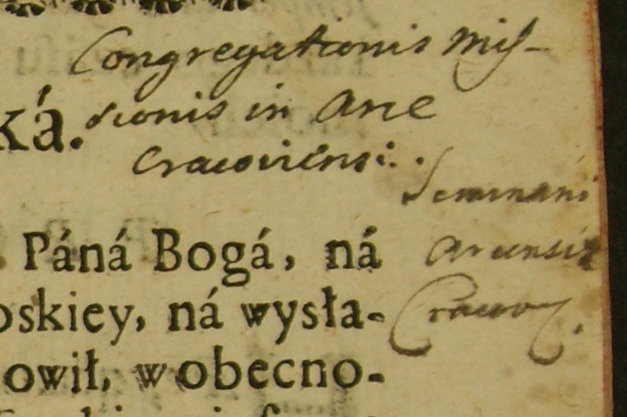 Congregationis Miſ-
sionis in Arce
ká.
Cracoviensi.
Seminarii
Arcensis
Páná Bogá, ná
oskiey, ná wysłá-
Cracov.
owił, w obecno-